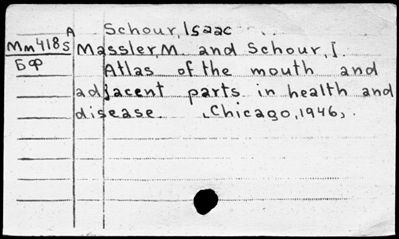 A Schour, Isaac
Mm418s Massler, M. and Schour, I.
БФ Atlas of the mouth and
adjacent parts in health and
disease. Chicago, 1946,.